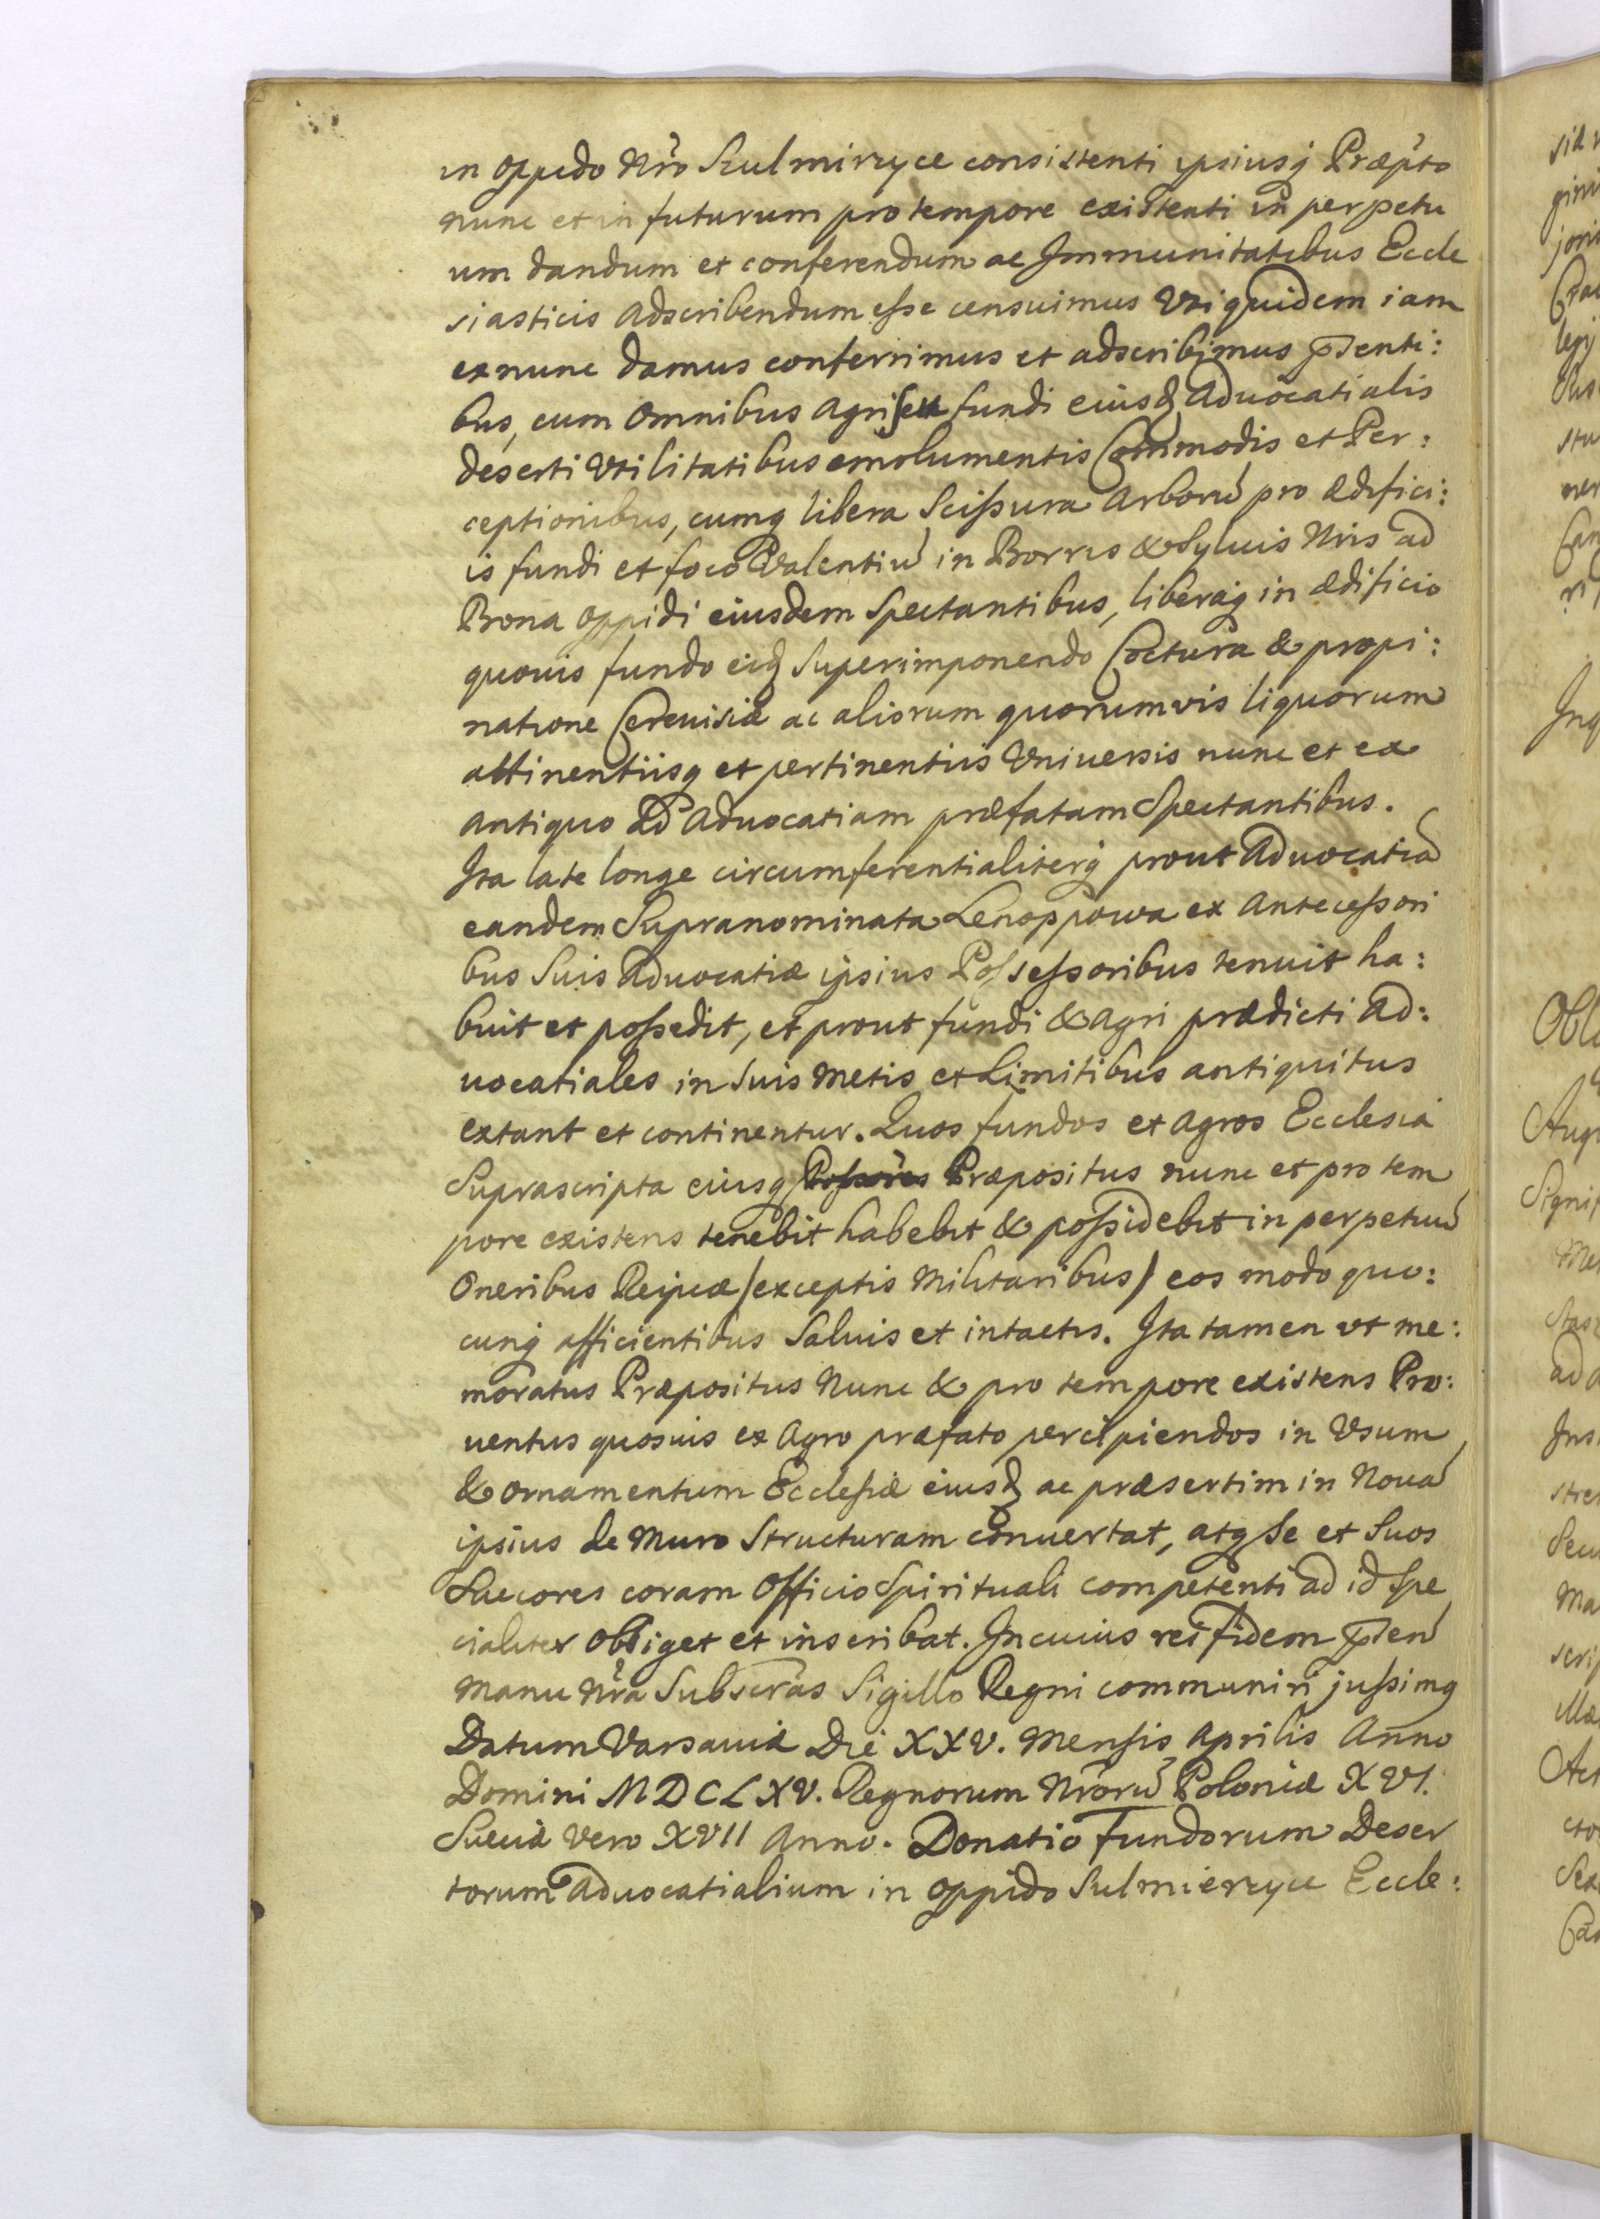 in oppido Nro Sculmirzyce consistenti ipsiusq Præpto
nunc et in futurum pro tempore existenti in perpetu
um dandum et conferendum ac Immunitatibus Eccle
siasticis adscribendum esse censuimus Vti quidem iam
ex nunc damus conferrimus et adscribimus pnti:
bus, cum omnibus agri seu fundi eiusd Aduocatialis
deserti Vtilitatibus emolumentis Commodis et Per:
ceptionibus, cumq libera Scissura Arború pro ædifici:
is fundi et foco Valentiú in Borris & Syluis Nris ad
Bona oppidi eiusdem Spectantibus, liberaq in ædificio
quouis fundo eid Superimponendo Coctura & propi:
natione Cereuisiæ ac aliorum quorumvis liquorum
attinentiisq et pertinentiis Vniuersis nunc et ex
antiquo ad Aduocatiam præfatam Spectantibus.
Ita late longe circumferentialiterq prout Aduocatiá
eandem Supranominata Lenoppowa ex Antecessori
bus Suis Aduocatiæ ipsius Possessoribus tenuit ha:
buit et possedit, et prout fundi & agri prædicti Ad:
uocatiales in Suis Metis et Limitibus antiquitus
extant et continentur. Quos fundos et agros Ecclesia
Suprascripta eiusq Præpositus nunc et pro tem
pore existens tenebit habebit & possidebit in perpetuú
Oneribus Reipcæ (exceptis Militaribus) eos modo quo:
cunq afficientibus Saluis et intactis. Ita tamen vt me:
moratus Præpositus Nunc & pro tempore existens Pro:
uentus quosuis ex Agro præfato percipiendos in Vsum
& ornamentum Ecclesiæ eiusd ac præsertim in Nouá
ipsius de Muro Structuram conuertat, atq se et Suos
Succores coram Officio Spirituali competenti ad id spe
cialiter obliget et inscribat. In cuius rei fidem pnten
Manu Nra Subscras Sigillo Regni communiri jussimq
Datum Varsauiæ Die XXV. Mensis Aprilis Anno
Domini MDCLXV. Regnorum Nrorú Poloniæ XVI.
Sueciæ Vero XVII Anno. Donatio Fundorum Deser
torum Aduocatialium in oppido Sulmierzyce Eccle: